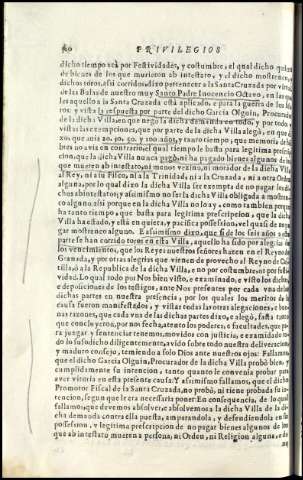 80 PRIVILEGIOS
dicho tiempo acà por Festividades, y costumbre, el qual dicho
de bienes de los que murieron ab intestato, y el dicho mostrenco,
dichos toros, assi corridos, dixo pertenecer à la Santa Cruzada por virtud
de las Bulas de nuestro muy Santo Padre Inocencio Octavo, en las
les aquello à la Santa Cruzada està aplicado, è para la guerra de los
ros: y vista la respuesta por parte del dicho Garcia Olguin, Procurador
de la dicha Villa, en que negò la dicha demanda en todo, y por todo, y
vistas las excepciones, que por parte de la dicha Villa alegò, en que
xo, que avia 20. 30. 50. y 100. años, y tanto tiempo, que memoria de
bres no avia en contrario, el qual tiempo le basta para legitima prescrip-
cion, que la dicha Villa nunca pagò, ni ha pagado bienes algunos de
que mueren ab intestato, ni menos vezino, ni morador de la dicha Villa
al Rey, ni à su Fisco, ni à la Trinidad, ni à la Cruzada, ni à otra Orden
alguna, por lo qual dixo la dicha Villa ser exempta de no pagar los di-
chos ab intestatos; y assimismo no ser la dicha Villa obligada à mostren-
co alguno, assi porque en la dicha Villa no lo ay, como tambien porque
ha tanto tiempo, que basta para legitima prescripcion, que la dicha
Villa ha estado, y està en quieta, y pacifica possession, vel quasi de no pa-
gar mostrenco alguno. E assimismo dixo, que si de seis años à esta
parte se han corrido toros en esta Villa, aquello ha sido por alegria de
los vencimientos, que los Reyes nuestros señores hazen en el Reyno de
Granada, y por otras alegrias que vienen de provecho al Reyno de Cas-
tilla, ò à la Republica de la dicha Villa, è no por costumbre, ni por festi-
vidad. Lo qual todo por Nos bien visto, è examinado, è vistos los dichos,
è deposiciones de los testigos, ante Nos presentes por cada vna de las
dichas partes en nuestra presencia, por los quales los meritos de la
causa fueron manifestados, y vistas todas las otras alegaciones, è bue-
nas razones, que cada vna de las dichas partes dixo, è alegò, hasta tanto
que concluyeron, por nos fecha, atento los poderes, è facultades, que pa-
ra juzgar y sentenciar tenemos, movidos con justicia, è examinado to-
do lo susodicho diligentemente, avido sobre todo nuestra deliberacion,
y maduro consejo, teniendo à solo Dios ante nuestros ojos: Fallamos
que el dicho Garcia Olguin, Procurador de la dicha Villa probò bien, y
cumplidamente su intencion, tanto quanto le convenia probar para
aver vitoria en esta presente causa: Y assimismo fallamos, que el dicho
Promotor Fiscal de la Santa Cruzada, no probò, ni tiene probada su in-
tencion, segun que le era necessario poner: En consequencia, de lo qual
fallamos, que devemos absolver, è absolvemos à la dicha Villa de la di-
cha demanda contra ella puesta, amparandola, y defendiendola en su
possession, y legitima prescripcion de no pagar bienes algunos de los
que ab intestato mueren à persona, ni Orden, ni Religion alguna, è de